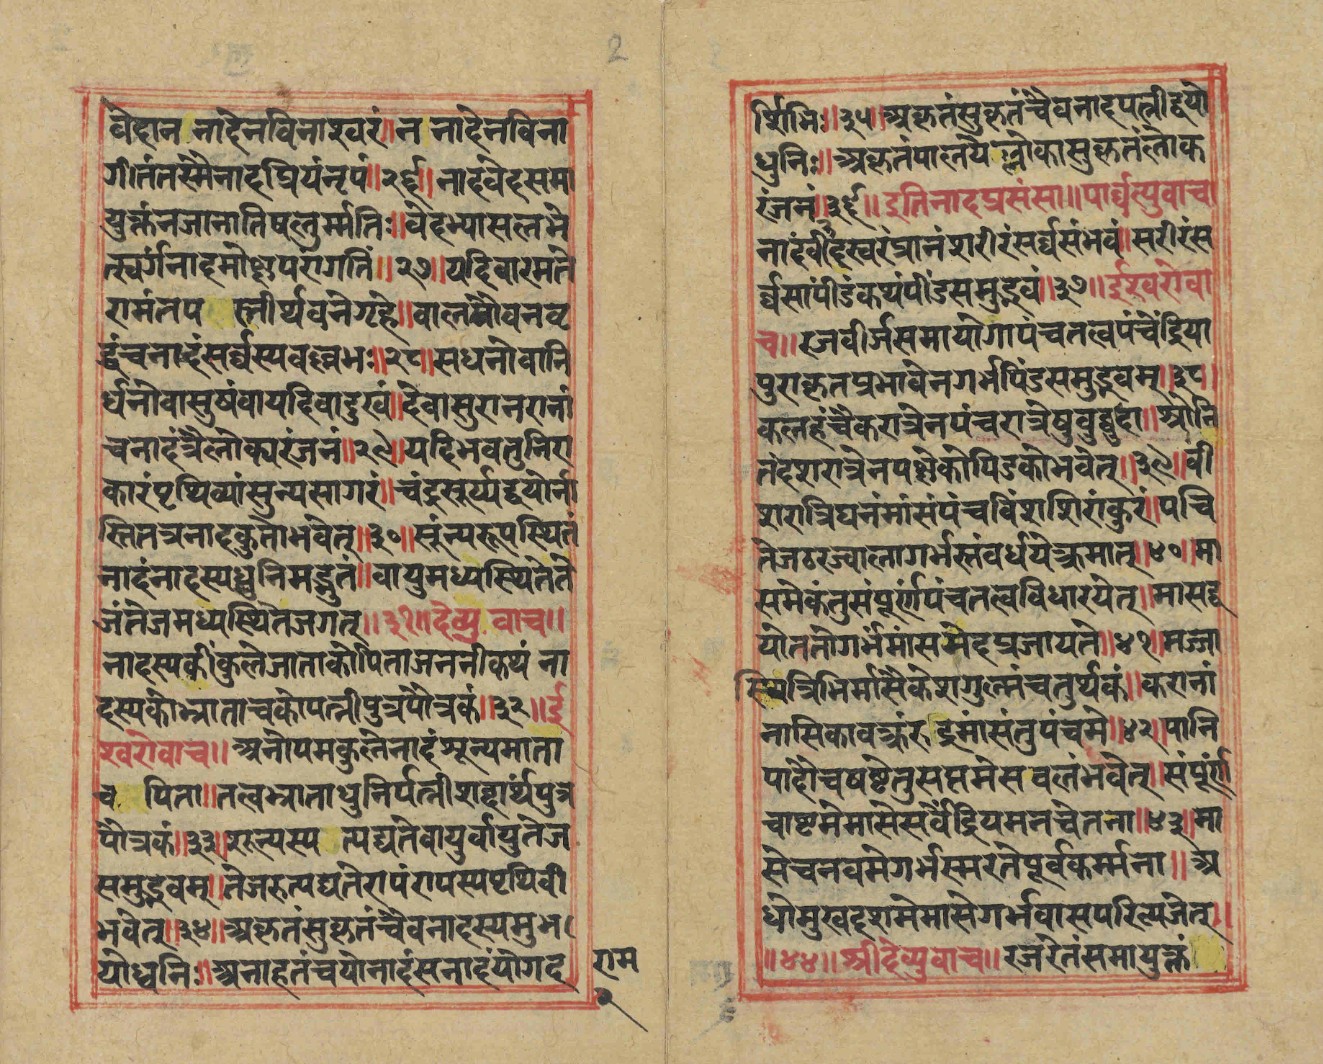 2
वेहान नादेनविनास्वरं॥न नादेनविना
गीतंतस्मैनादप्रियंनृपं॥२६॥नादंवेदसमा
युर्क्तनजानातिषलुर्म्मतिः॥वेदभ्यासलभे
त्स्वर्गनादमोक्षपरागतिं॥२७॥यदिवारमते
रामंतप त्नीर्थवनेगृहे॥वालयौवनवृ
द्धंचनादंसर्व्वस्यवल्लभः॥२८॥सधनोवानि
र्धनोवासुषंवायदिवादुखं॥देवासुरानरानां
चनादंत्रैलोक्यरंजनं॥२९॥यदिभवतुनिरा
कारंपृथिव्यांसुन्यसागरं॥चंद्रसुर्य्यद्वयोर्ना
स्तितत्रनादकुतोभवेत्॥३०॥सूंन्यरूपस्थितं
नादंनादस्यध्वुनिमद्भुतं॥वायुमध्यस्थितेते
जंतेजमध्यस्थितेजगत्॥३१॥देव्यु वाच॥
नादस्यकींकुलेजाताकोपिताजननीकथं ना
दस्यकोभ्राताचकोपत्नीपुत्रपौत्रकं॥३२॥ई
स्वरोवाच॥अनोपमकुलेनादंशून्यमाता
च पिता॥तत्वभ्राताधुनिर्पत्नीशब्दार्थपुत्र
पौत्रकं॥३३॥शून्यस्य त्पद्यतेवायुर्वायुतेज
समुद्भवम्॥तेजरुत्पद्यतेरापंरापस्यपृथिवी
भवेत्॥३४॥अकृतंसुकृतंचैवनादस्यमुभ
योध्वनिः॥अनाहतंचयोनादंसनादंयोगद
राम
२
र्शिभिः॥३५॥अकृतंसुकृतंचैवनादपत्नीद्वयो
धुनिः॥अकृतंपालयेल्लोकासुकृतंलोक
रंजनं॥३६॥इतिनादप्रसंसा॥पार्व्वत्युवाच
नादंवींदस्वरंप्रानंशरीरंसर्व्वसंभवं॥सरीरंस
र्व्वसांपींडंकथंपींडसमुद्भवं॥३७॥ईस्वरोवा
च॥रजवीर्जसमायोगापंचतत्वपंचेंद्रिया
पुराकृतप्रभावेनगर्भपिंडसमुद्भवम्॥३८॥
कललंचैकरात्रेनपंचरात्रेषुवुद्वुदा॥श्रोनि
तंदशरात्रेनपक्षैकोपिडकोभवेत्॥३९॥वीं
शरात्रिघनंमांसंपंचविंशशिरांकुरं॥पचि
तेजठरज्वालागर्भस्तंवर्धयेत्क्रमात्॥४०॥मा
समेकंतुसंपूर्णपंचतत्वविधारयेत्॥मासद्व
योततोगर्भेमांसमेदप्रजायते॥४१॥मज्जा
स्थित्रिभिर्मासैकेशगुल्मंचतुर्थकं॥करानां
नासिकावक्त्रंरुद्रमासंतुपंचमे॥४२॥पानि
पादौचषष्टेतुसप्तमेसवलंभवेत्॥संपूर्ण
चाष्टमेमासेसर्वेंद्रियमनचेतना॥४३॥मा
सेचनवमेगर्भस्मरतेपूर्वकर्म्मना॥अ
धोमुखदशमेमासेगर्भवासपरित्यजेत्॥
॥४४॥श्रीदेव्युवाच॥रजरेतंसमायुक्तं